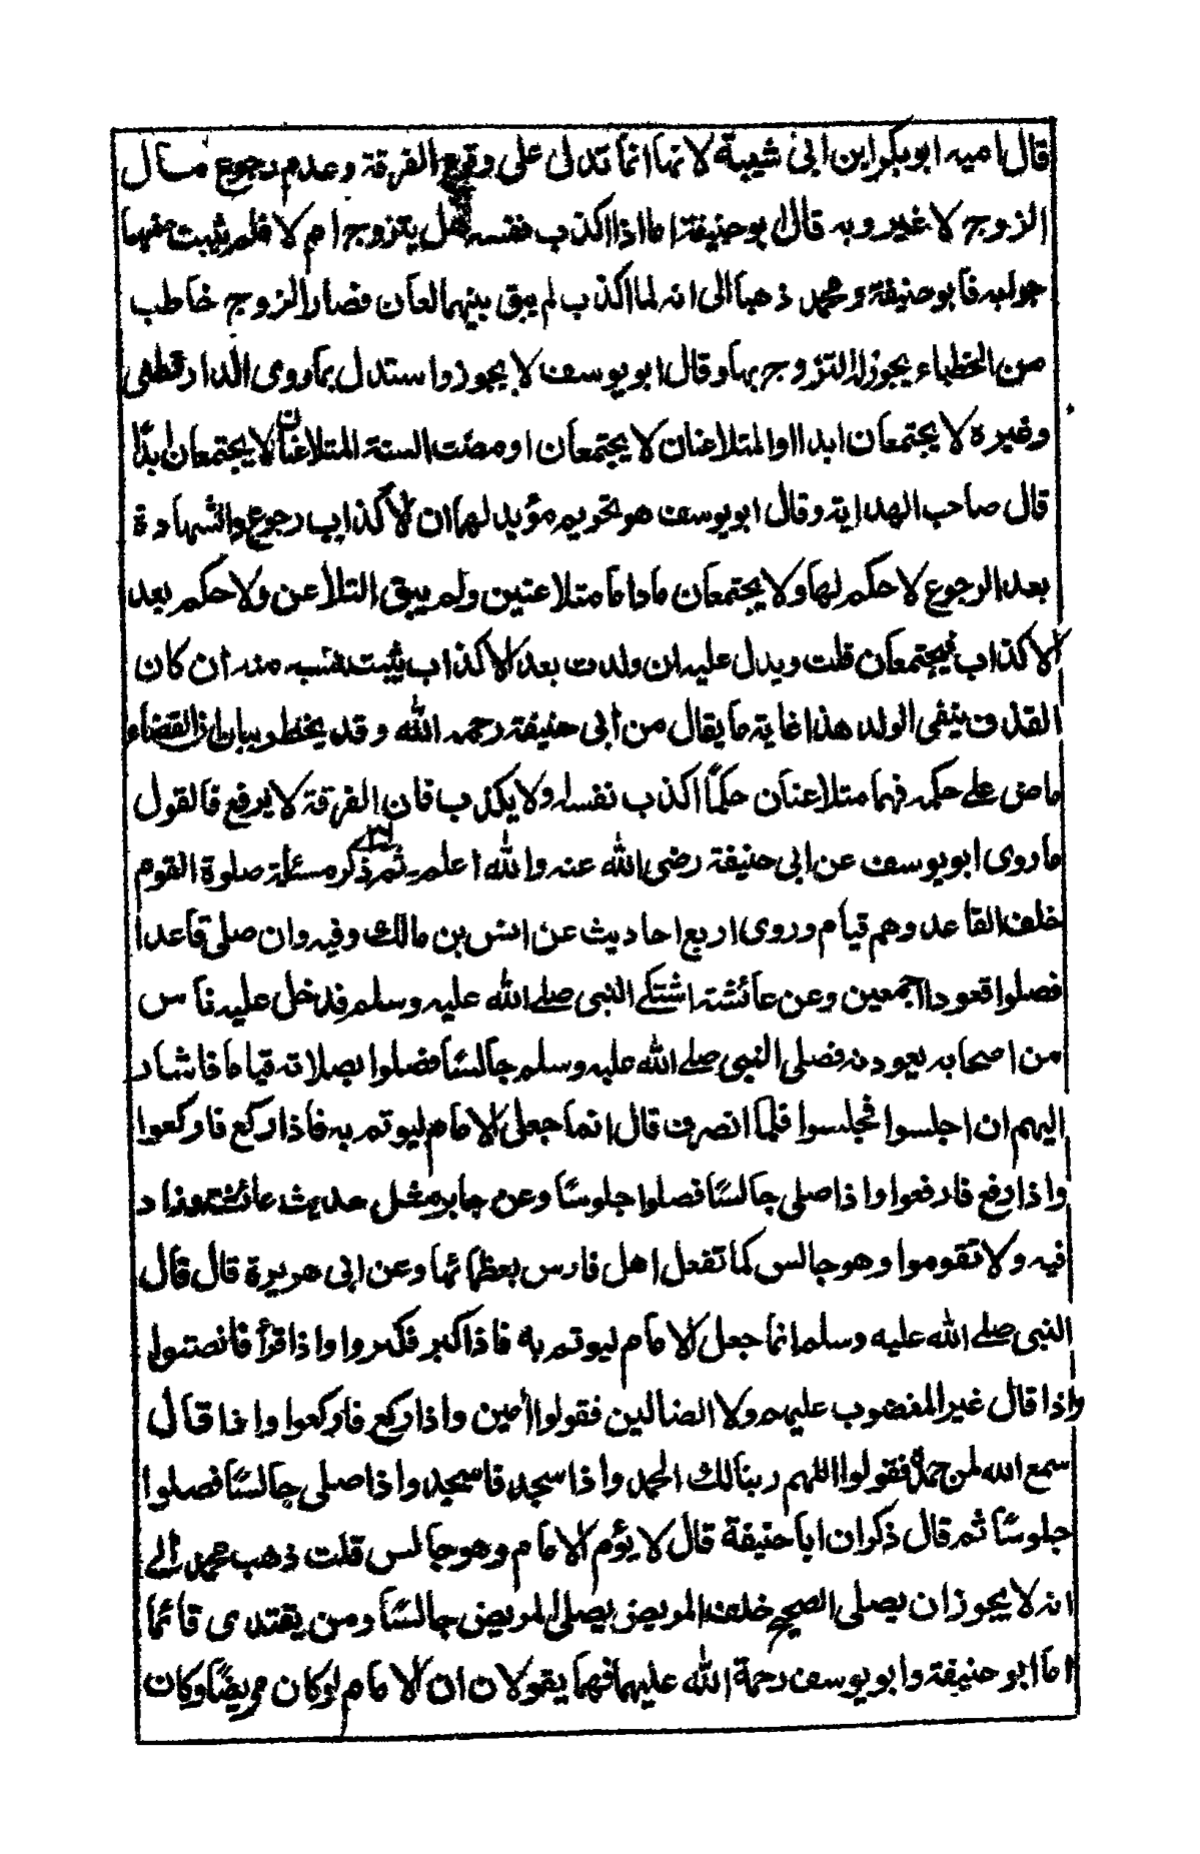 قال اميه ابو بكر ابن ابى شيبة لانها انما تدل على وقوع الفرقة وعدم رجوع مسأل
الزوج لا غير وبه قال ابو حنيفة اما اذا اكذب نفسه هل يتزوج ام لا فلم يثبت منهما
جوابه فابو حنيفة و محمد ذهبا الى انه لما اكذب لم يبق بينهما لعان فصار الزوج خاطب
من الخطباء يجوز له التزوج بها وقال ابو يوسف لا يجوز واستدل بما روى الدارقطنى
وغيره لا يجتمعان ابدا او المتلاعنان لا يجتمعان او مضت السنة المتلاعنان لا يجتمعان ابدًا
قال صاحب الهداية وقال ابو يوسف هو تحريم مؤيد لهما ان الاكذاب رجوع والشهادة
بعد الرجوع لا حكم لها ولا يجتمعان ما داما متلاعنين ولم يبق التلاعن ولا حكم بعد
الاكذاب فيجتمعان قلت ويدل عليه ان ولدت بعد الاكذاب يثبت نسبه منه ان كان
القذف ينفى الولد هذا غاية ما يقال من ابى حنيفة رحمه الله وقد يخطر ببالى ان القضاء
ماض على حكمه فهما متلاعنان حكمًا اكذب نفسه او لا يكذب فان الفرقة لا يرفع فالقول
ما روى ابو يوسف عن ابى حنيفة رضى الله عنه والله اعلم ثم ذكر مسئلة صلوة القوم
خلف القاعد وهم قيام وروى اربع احاديث عن انس بن مالك وفيه وان صلى قاعدا
فصلوا قعودا اجمعين وعن عائشة اشتكى النبى صلى الله عليه وسلم فدخل عليه ناس
من اصحابه يعودنه فصلى النبى صلى الله عليه وسلم جالسًا فصلوا بصلاته قياما فاشار
اليهم ان اجلسوا فجلسوا فلما انصرف قال انما جعل الامام ليوتم به فاذا ركع فاركعوا
واذا رفع فارفعوا واذا صلى جالسًا فصلوا جلوسًا وعن جابر مثل حديث عائشة وزاد
فيه ولا تقوموا وهو جالس كما تفعل اهل فارس بعظمائها وعن ابى هريرة قال قال
النبى صلى الله عليه وسلم انما جعل الامام ليوتم به فاذا كبر فكبروا واذا قرأ فانصتوا
واذا قال غير المغضوب عليهم ولا الضالين فقولوا أمين واذا ركع فاركعوا واذا قال
سمع الله لمن حمده فقولوا اللهم ربنا لك الحمد واذا سجد فاسجد واذا صلى جالسًا فصلوا
جلوسًا ثم قال ذكر ان ابا حنيفة قال لا يؤم الامام وهو جالس قلت ذهب محمد الى
انه لا يجوز ان يصلى الصحيح خلف المريض يصلى المريض جالسًا ومن يقتدى قائما
اما ابو حنيفة وابو يوسف رحمة الله عليهما فهما يقولان ان الامام لو كان مريضًا وكان